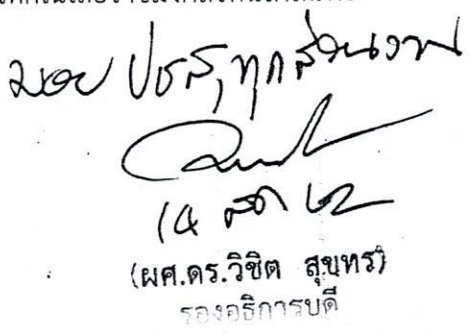 มอบ ปชส, ทุกส่วนงาน
14 สค ๖๒
(ผศ.ดร.วิชิต สุขทร)
รองอธิการบดี